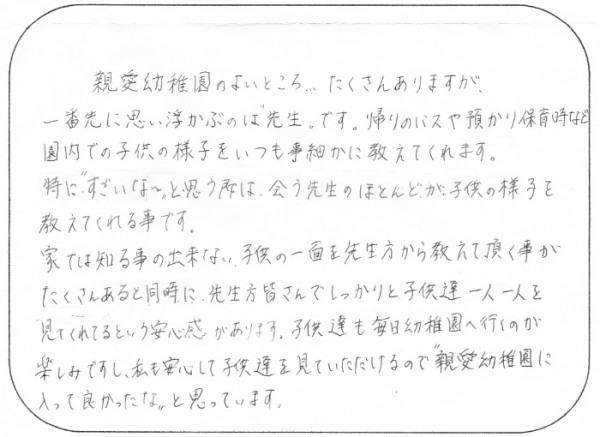 親愛幼稚園のよいところ… たくさんありますが、
一番先に思い浮かぶのは"先生"。です。帰りのバスや預かり保育時など
園内での子供の様子をいつも事細かに教えてくれます。
特に"すごいな〜"と思う所は、会う先生のほとんどが子供の様子を
教えてくれる事です。
家では知る事の出来ない、子供の一面を先生方から教えて頂く事が
たくさんあると同時に、先生方皆さんでしっかりと子供達一人一人を
見てくれてるという安心感があります。子供達も毎日幼稚園へ行くのが
楽しみですし、私も安心して子供達を見ていただけるので"親愛幼稚園に
入って良かったな"と思っています。